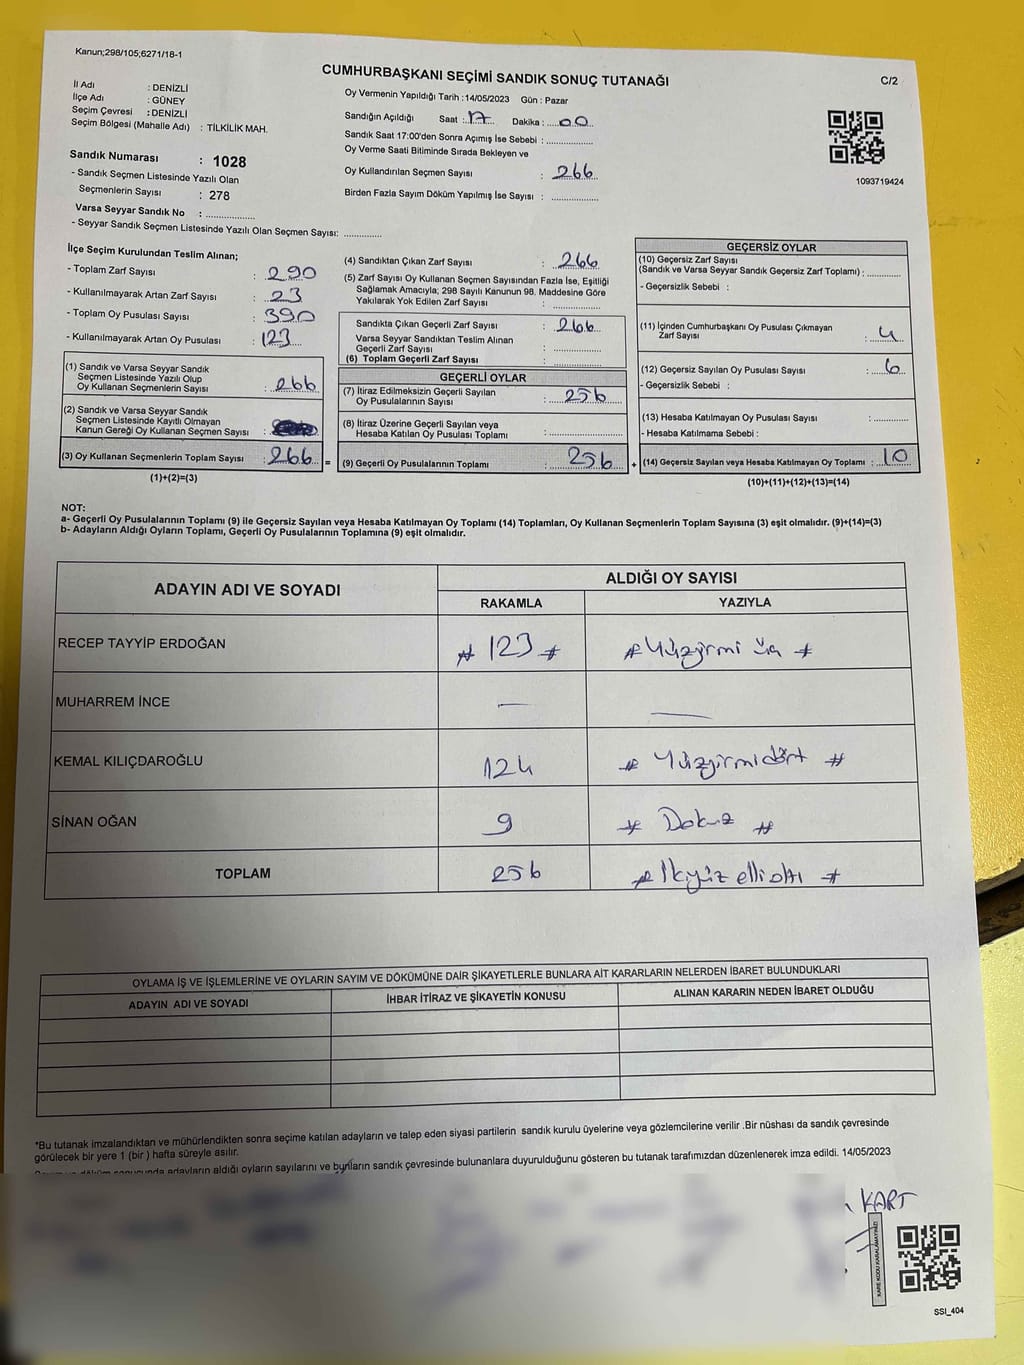 Kanun;298/105;6271/18-1
C/2
CUMHURBAŞKANI SEÇİMİ SANDIK SONUÇ TUTANAĞI
İl Adı : DENİZLİ
İlçe Adı : GÜNEY
Seçim Çevresi : DENİZLİ
Seçim Bölgesi (Mahalle Adı) : TİLKİLİK MAH.
Sandık Numarası : 1028
- Sandık Seçmen Listesinde Yazılı Olan
Seçmenlerin Sayısı : 278
Varsa Seyyar Sandık No : ................
- Seyyar Sandık Seçmen Listesinde Yazılı Olan Seçmen Sayısı: ............
Oy Vermenin Yapıldığı Tarih :14/05/2023 Gün : Pazar
Sandığın Açıldığı Saat : 17 Dakika : 00
Sandık Saat 17:00'den Sonra Açımış İse Sebebi : ..............
Oy Verme Saati Bitiminde Sırada Bekleyen ve
Oy Kullandırılan Seçmen Sayısı : 266
Birden Fazla Sayım Döküm Yapılmış İse Sayısı : ..............
1093719424
İlçe Seçim Kurulundan Teslim Alınan;
- Toplam Zarf Sayısı : 290
- Kullanılmayarak Artan Zarf Sayısı : 23
- Toplam Oy Pusulası Sayısı : 390
- Kullanılmayarak Artan Oy Pusulası : 123
(1) Sandık ve Varsa Seyyar Sandık
Seçmen Listesinde Yazılı Olup
Oy Kullanan Seçmenlerin Sayısı : 266
(2) Sandık ve Varsa Seyyar Sandık
Seçmen Listesinde Kayıtlı Olmayan
Kanun Gereği Oy Kullanan Seçmen Sayısı :
(3) Oy Kullanan Seçmenlerin Toplam Sayısı : 266 =
(1)+(2)=(3)
(4) Sandıktan Çıkan Zarf Sayısı : 266
(5) Zarf Sayısı Oy Kullanan Seçmen Sayısından Fazla İse, Eşitliği
Sağlamak Amacıyla; 298 Sayılı Kanunun 98. Maddesine Göre
Yakılarak Yok Edilen Zarf Sayısı : ..............
Sandıkta Çıkan Geçerli Zarf Sayısı : 266
Varsa Seyyar Sandıktan Teslim Alınan
Geçerli Zarf Sayısı : ..............
(6) Toplam Geçerli Zarf Sayısı : ..............
GEÇERLİ OYLAR
(7) İtiraz Edilmeksizin Geçerli Sayılan
Oy Pusulalarının Sayısı : 256
(8) İtiraz Üzerine Geçerli Sayılan veya
Hesaba Katılan Oy Pusulası Toplamı : ..............
(9) Geçerli Oy Pusulalarının Toplamı : 256 +
GEÇERSİZ OYLAR
(10) Geçersiz Zarf Sayısı
(Sandık ve Varsa Seyyar Sandık Geçersiz Zarf Toplamı) : ..........
- Geçersizlik Sebebi :
(11) İçinden Cumhurbaşkanı Oy Pusulası Çıkmayan
Zarf Sayısı : 4
(12) Geçersiz Sayılan Oy Pusulası Sayısı : 6
- Geçersizlik Sebebi :
(13) Hesaba Katılmayan Oy Pusulası Sayısı : ..........
- Hesaba Katılmama Sebebi :
(14) Geçersiz Sayılan veya Hesaba Katılmayan Oy Toplamı : 10
(10)+(11)+(12)+(13)=(14)
NOT:
a- Geçerli Oy Pusulalarının Toplamı (9) ile Geçersiz Sayılan veya Hesaba Katılmayan Oy Toplamı (14) Toplamları, Oy Kullanan Seçmenlerin Toplam Sayısına (3) eşit olmalıdır. (9)+(14)=(3)
b- Adayların Aldığı Oyların Toplamı, Geçerli Oy Pusulalarının Toplamına (9) eşit olmalıdır.
ADAYIN ADI VE SOYADI
ALDIĞI OY SAYISI
RAKAMLA YAZIYLA
RECEP TAYYİP ERDOĞAN # 123 # # Yüzyirmi üç #
MUHARREM İNCE — —
KEMAL KILIÇDAROĞLU 124 # Yüzyirmidört #
SİNAN OĞAN 9 # Dokuz #
TOPLAM 256 # İkiyüz elli altı #
OYLAMA İŞ VE İŞLEMLERİNE VE OYLARIN SAYIM VE DÖKÜMÜNE DAİR ŞİKAYETLERLE BUNLARA AİT KARARLARIN NELERDEN İBARET BULUNDUKLARI
ADAYIN ADI VE SOYADI İHBAR İTİRAZ VE ŞİKAYETİN KONUSU ALINAN KARARIN NEDEN İBARET OLDUĞU
*Bu tutanak imzalandıktan ve mühürlendikten sonra seçime katılan adayların ve talep eden siyasi partilerin sandık kurulu üyelerine veya gözlemcilerine verilir .Bir nüshası da sandık çevresinde
görülecek bir yere 1 (bir ) hafta süreyle asılır.
adayların aldığı oyların sayılarını ve bunların sandık çevresinde bulunanlara duyurulduğunu gösteren bu tutanak tarafımızdan düzenlenerek imza edildi. 14/05/2023
KART
KARE KODU KARALAMAYINIZ!
SSI_404